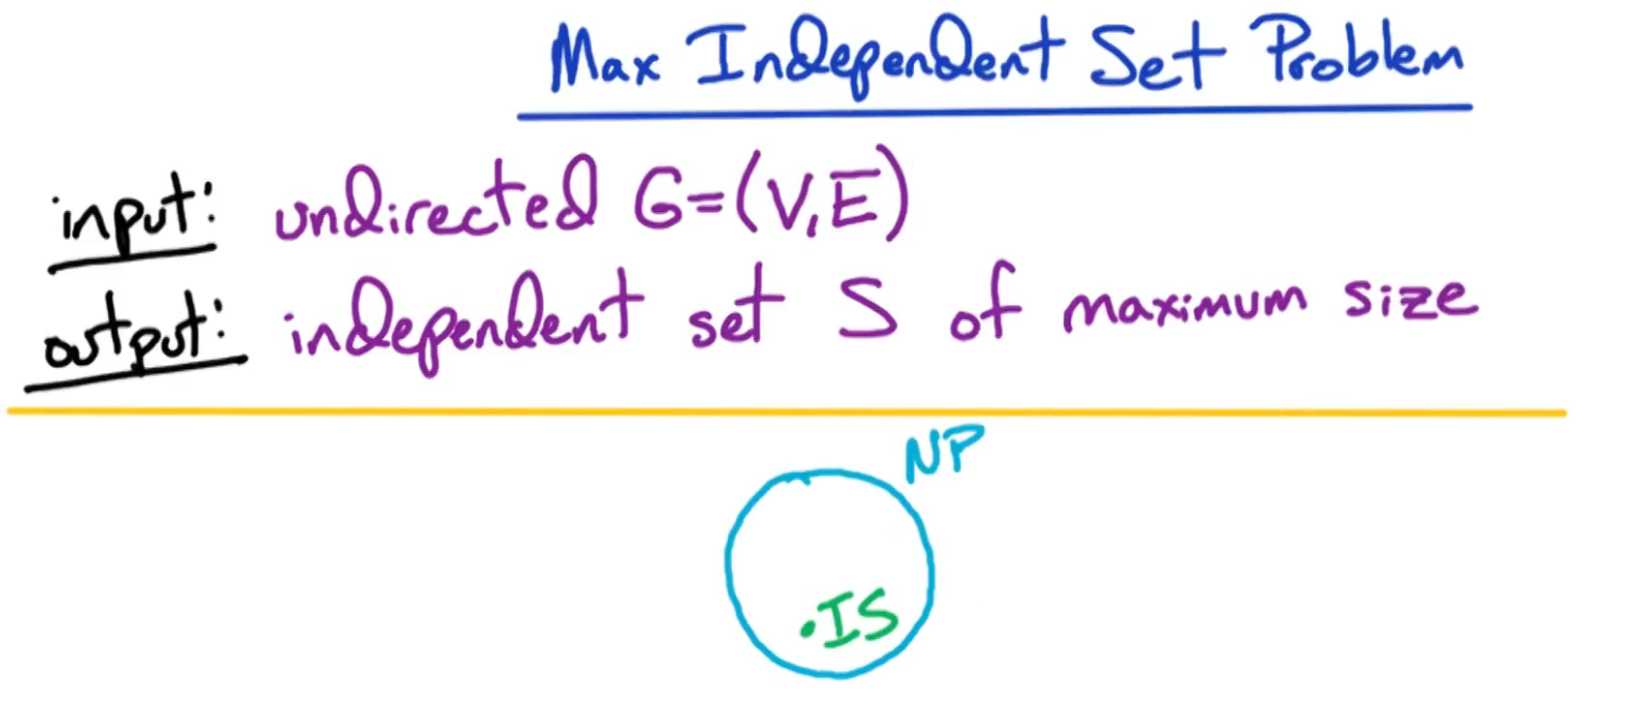 Max Independent Set Problem
input: undirected G=(V,E)
output: independent set S of maximum size
NP
.IS